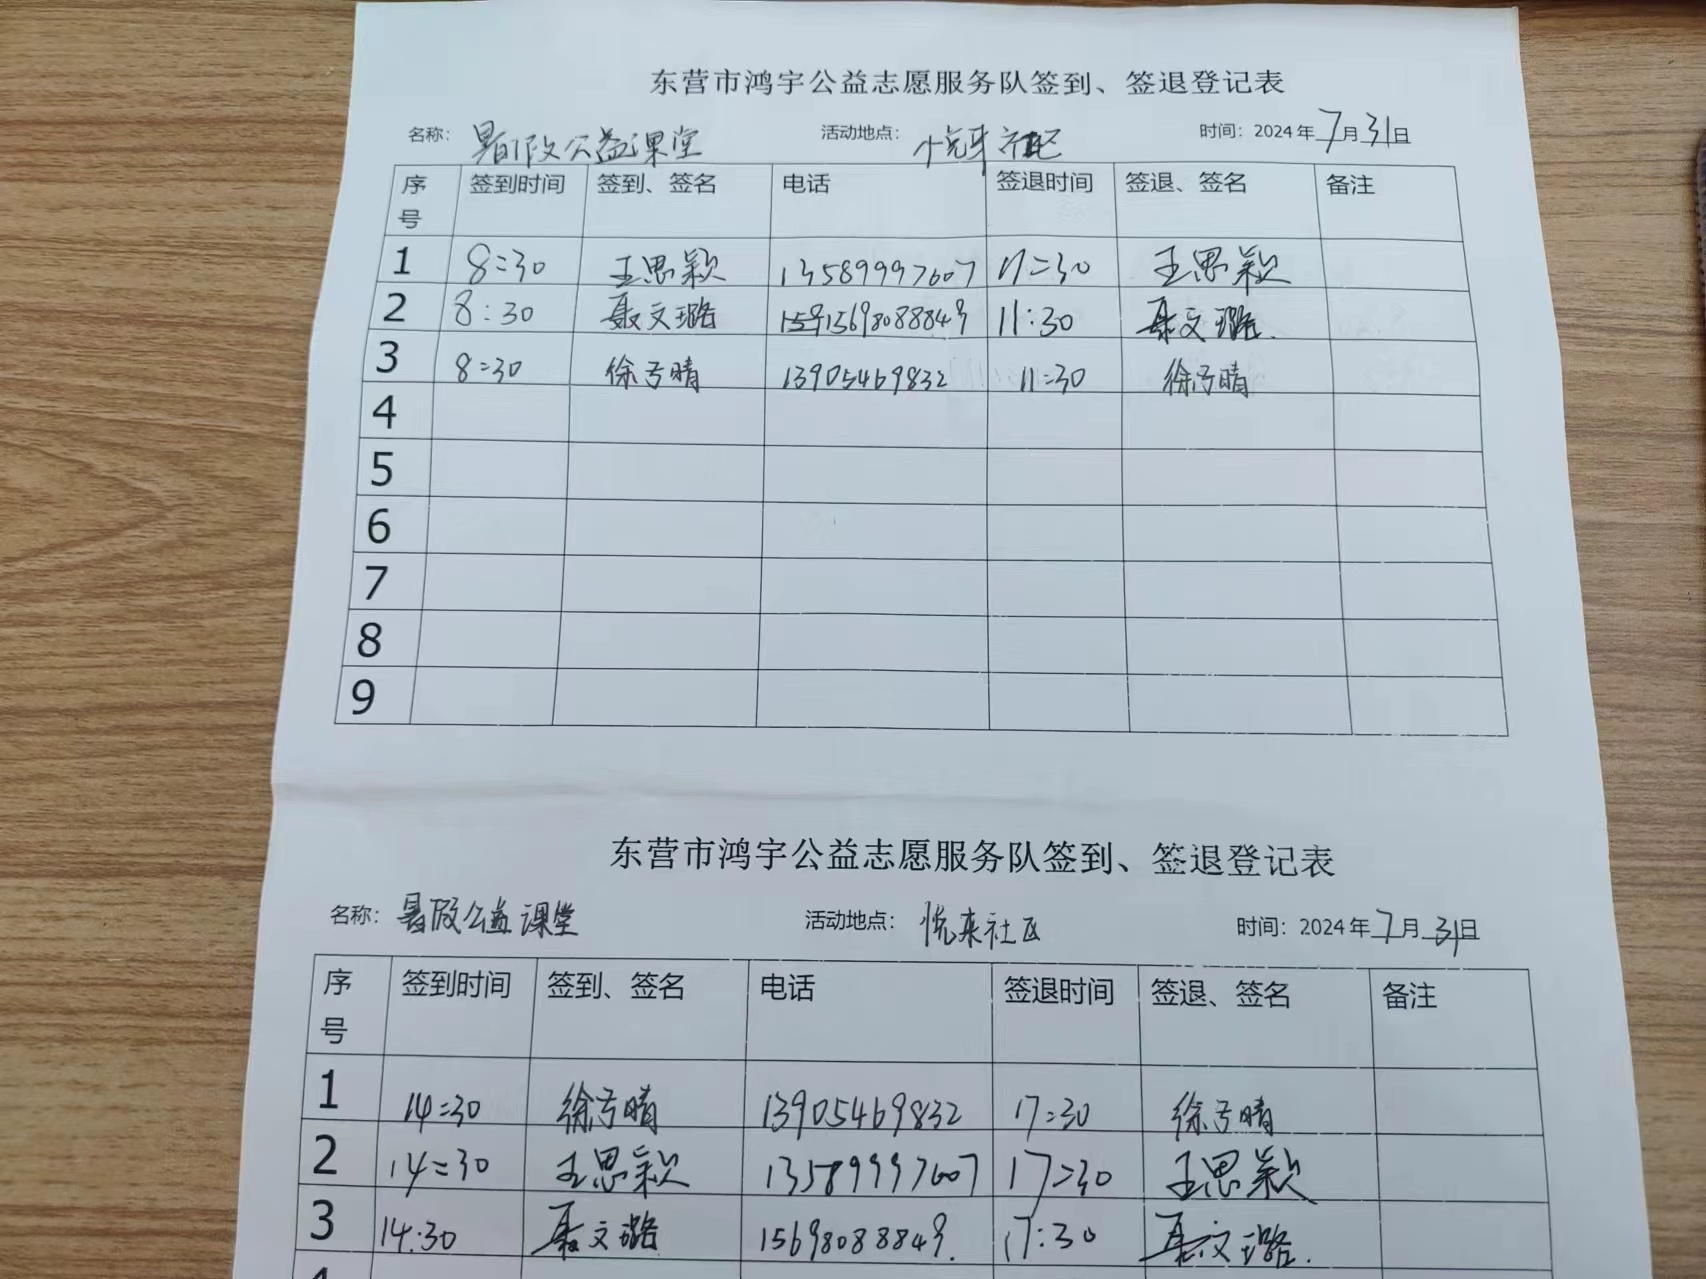 东营市鸿宇公益志愿服务队签到、签退登记表
名称: 暑假公益课堂 活动地点: 悦来社区 时间: 2024年7月31日
序号 签到时间 签到、签名 电话 签退时间 签退、签名 备注
1 8:30 王思颖 13589997607 11:30 王思颖
2 8:30 聂文璐 15698088849 11:30 聂文璐
3 8:30 徐亏晴 13905469832 11:30 徐亏晴
4
5
6
7
8
9
东营市鸿宇公益志愿服务队签到、签退登记表
名称: 暑假公益课堂 活动地点: 悦来社区 时间: 2024年7月31日
序号 签到时间 签到、签名 电话 签退时间 签退、签名 备注
1 14:30 徐亏晴 13905469832 17:30 徐亏晴
2 14:30 王思颖 13589997607 17:30 王思颖
3 14:30 聂文璐 15698088849. 17:30 聂文璐.